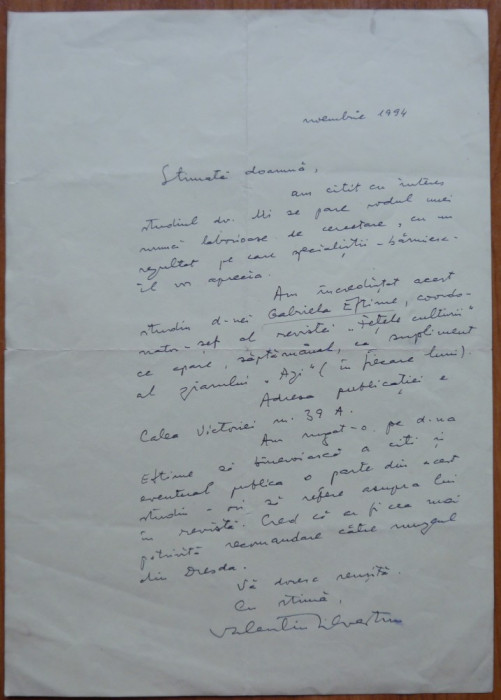 noembrie 1994
Stimată doamnă,
am citit cu interes
studiul dv. Mi se pare rodul unei
munci laborioase de cercetare, cu un
rezultat pe care specialiștii - bănuiesc -
îl vor aprecia.
Am încredințat acest
studiu d-nei Gabriela Eftime, coordo-
nator-șef al revistei "Fețele culturii"
ce apare, săptămânal, ca supliment
al ziarului "Azi" (în fiecare luni).
Adresa publicației e
Calea Victoriei nr. 39 A.
Am rugat-o pe d-na
Eftime să binevoiască a citi și
eventual publica o parte din acest
studiu - ori să refere asupra lui
în revistă. Cred că ar fi cea mai
potrivită recomandare către muzeul
din Dresda.
Vă doresc reușită.
Cu stimă,
Valentin Silvestru